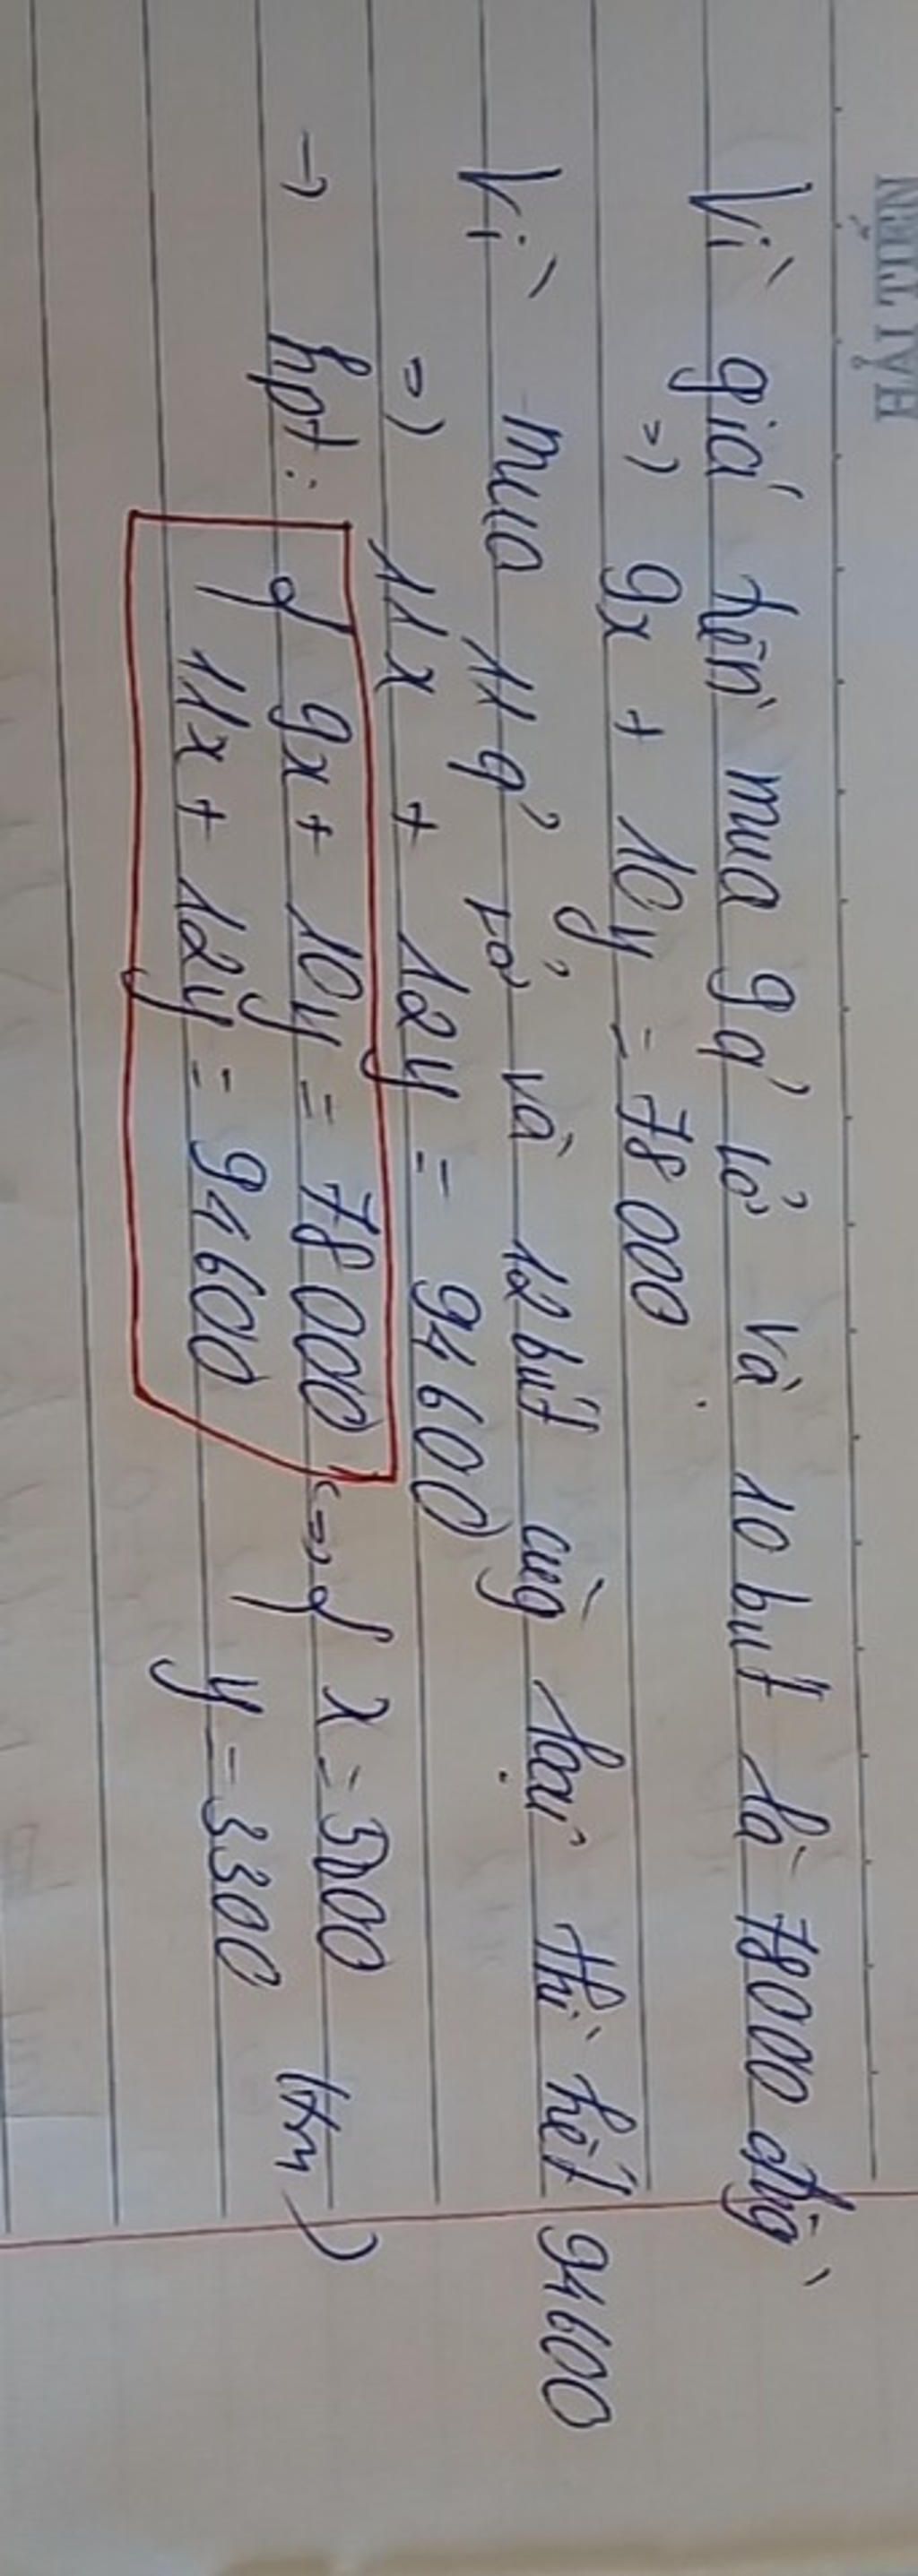 Vì giá tiền mua 9 q' vở và 10 bút là 78000 đồng
=> 9x + 10y = 78 000
Vì mua 11 q' vở và 12 bút cùng loại thì hết 94600
=> 11x + 12y = 94 600
→ hpt: { 9x + 10y = 78 000 <=> { x = 5000
11x + 12y = 94600 y = 3300 (tm)